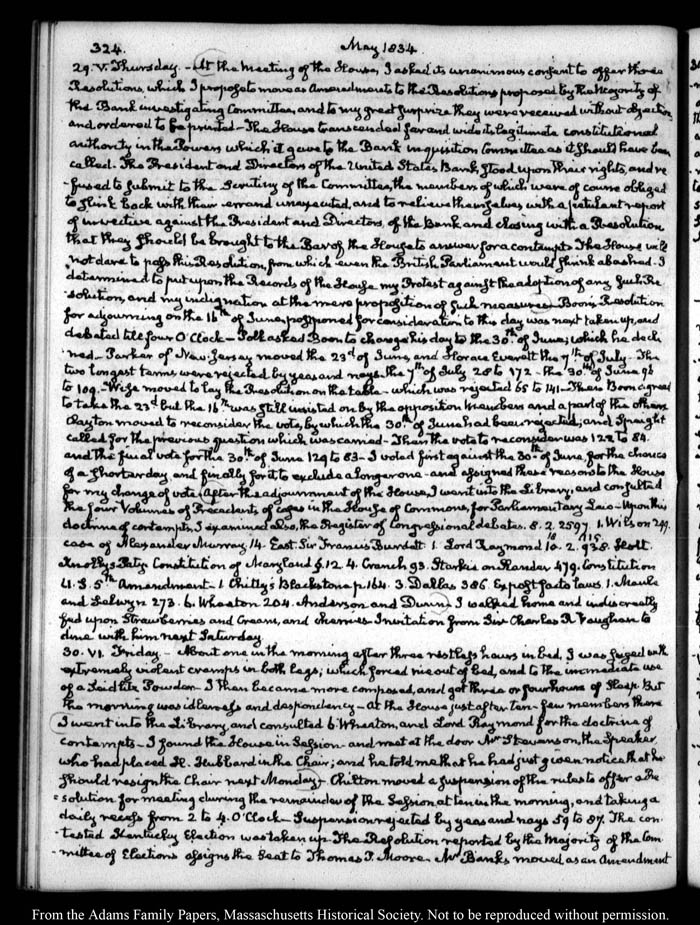 324.
May 1834
29. V. Thursday. - At the meeting of the House, I asked its unanimous consent to offer three
Resolutions, which I propose to move as Amendments to the Resolutions proposed by the Majority of
the Bank investigating Committee, and to my great surprize they were received without objection
and ordered to be printed - The House transcended far and wide its legitimate constitutional
authority in the Powers which it gave to the Bank inquisition Committee as it should have been
called. The President and Directors of the United States Bank, stood upon their rights, and re
-fused to submit to the Scrutiny of the Committee, the members of which were of course obliged
to slink back with their errand unexecuted, and to relieve themselves with a petulant report
of invective against the President and Directors, of the Bank and closing with a Resolution
that they should be brought to the Bar of the House to answer for a contempt - The House will
not dare to pass this Resolution, from which even the British Parliament would shrink abashed - I
determined to put upon the Records of the House my Protest against the adoption of any such Re
-solution, and my indignation at the mere proposition of such measures - Boon's Resolution
for adjourning on the 16th of June, postponed for consideration to this day was next taken up, and
debated till four O'Clock - Polk asked Boon to change his day to the 30th of June; which he decli
-ned - Parker of New Jersey moved the 23d of June, and Horace Everett the 7th of July - The
two longest terms were rejected by yeas and nays. the 7th of July 28 to 172 - the 30th of June 96
to 109. - Wise moved to lay the Resolution on the table - which was rejected 65 to 141 - Then Boon agreed
to take the 23d but the 16th was still insisted on by the opposition members and a part of the others
Clayton moved to reconsider the vote, by which the 30th of June had been rejected; and Speight
called for the previous question which was carried - Then the vote to reconsider was 122 to 84.
and the final vote for the 30th of June 129 to 83 - I voted first against the 30th of June, for the chance
of a shorter day and finally for it to exclude a longer one - and assigned these reasons to the House
for my change of vote. After the adjournment of the House, I went into the Library, and consulted
the four Volumes of Precedents, of cases in the House of Commons, for Parliamentary Law - Upon this
doctrine of contempts, I examined also, the Register of Congressional debates. 8. 2. 2597. 1. Wilson 249.
case of Alexander Murray, 14. East. Sir Francis Burdett. 1. Lord Raymond 10. 2. 938. Holt.
Knollys Paty. Constitution of Maryland §. 12. 4. Cranch 93. Starkie on Slander 479. Constitution
U. S. 5th Amendment - 1. Chitty's Blackstone p. 164. 3. Dallas 386. Expost facto laws. 1. Maule
and Selwyn 273. 6. Wheaton 204. Anderson and Dunn. I walked home and indiscreetly
fed upon Strawberries and Cream, and cherries - Invitation from Sir Charles R. Vaughan to
dine with him next Saturday.
30. VI. Friday - About one in the morning after three restless hours in bed, I was seized with
extremely violent cramps in both legs; which forced me out of bed, and to the immediate use
of a Seidlitz Powder - I then became more composed, and got three or four hours of sleep. But
the morning was idleness and despondency - at the House just after ten - few members there
I went into the Library and consulted 6. Wheaton, and Lord Raymond for the doctrine of
contempts - I found the House in Session - and met at the door Mr Stevenson, the Speaker,
who had placed H. Hubbard in the Chair; and he told me that he had just given notice that he
should resign the Chair next Monday - Chilton moved a suspension of the rules to offer a Re
-solution for meeting during the remainder of the Session at ten in the morning, and taking a
daily recess from 2 to 4. O'Clock - Suspension rejected by yeas and nays 59 to 87. The con
-tested Kentucky Election was taken up. The Resolution reported by the Majority of the Com
-mittee of Elections assigns the Seat to Thomas P. Moore. Mr Banks moved as an Amendment
From the Adams Family Papers, Massachusetts Historical Society. Not to be reproduced without permission.